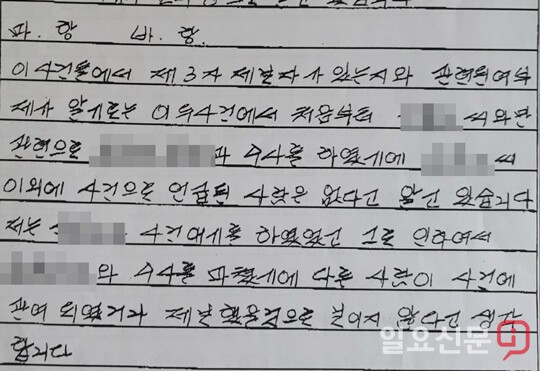 파. 항 바. 항.
이 사건들에서 제 3자 제보자가 있는지와 관련된 여부
제가 알기로는 이 사건에서 처음부터 씨와만
관련으로 과 수사를 하였기에 씨
이외에 사건으로 언급된 사람은 없다고 알고 있습니다
저는 사건 얘기를 하였었고 그로 인하여서
와 수사를 마쳤기에 다른 사람이 사건에
관여 되었거나 제보 했을것으로 보이지 않다고 생각
합니다
일요신문